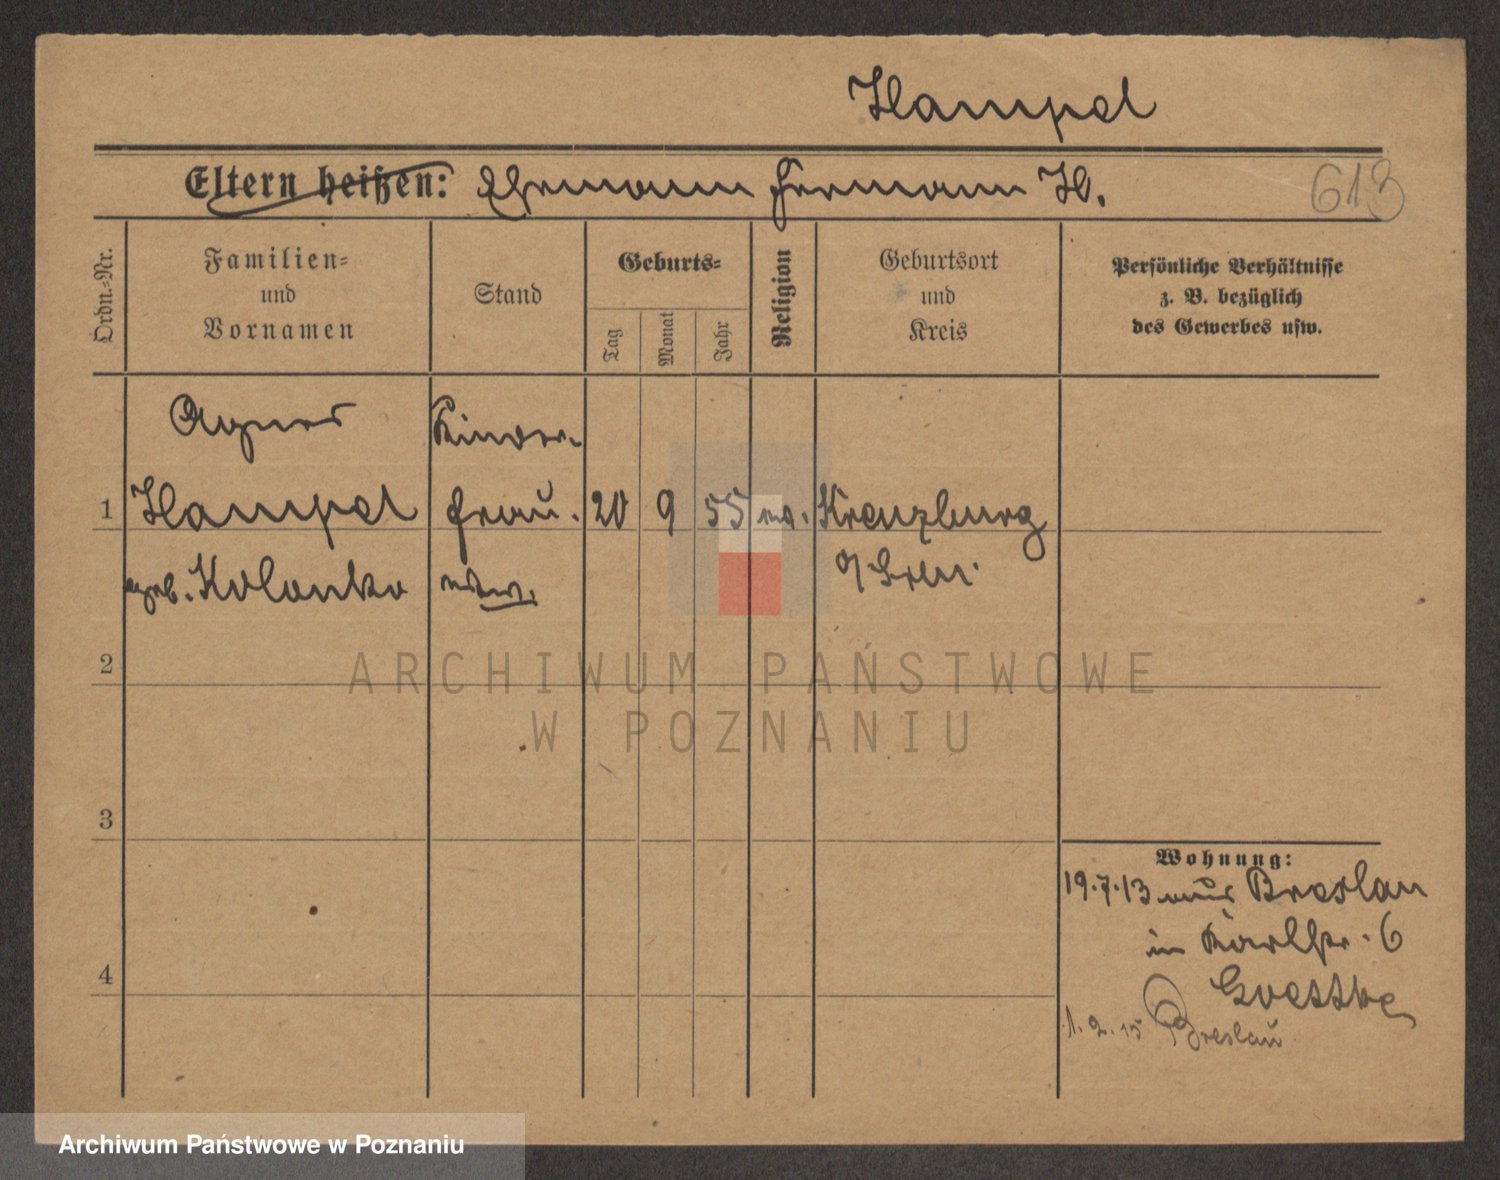 Hampel
Eltern heißen: Ehemann Hermann H.
613
Ordn.-Nr.
Familien-
und
Vornamen
Stand
Geburts-
Tag
Monat
Jahr
Religion
Geburtsort
und
Kreis
Persönliche Verhältnisse
z. B. bezüglich
des Gewerbes usw.
Agnes Kinder-
1 Hampel frau. 20 9 55 ev. Kreuzburg
geb. Kolonko
2
3
4
Wohnung:
19.7.13 aus Breslau
in Karlstr. 6
Goettke
1.2.15 Breslau
ARCHIWUM PAŃSTWOWE
W POZNANIU
Archiwum Państwowe w Poznaniu